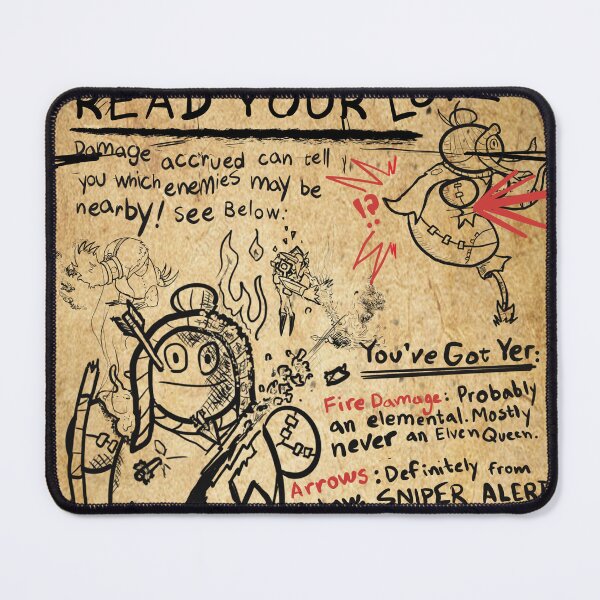 READ YOUR
Damage accrued can tell
you which enemies may be
nearby! See Below:
!?
You've Got Yer:
Fire Damage: Probably
an elemental. Mostly
never an Elven Queen.
Arrows: Definitely from
SNIPER ALERT